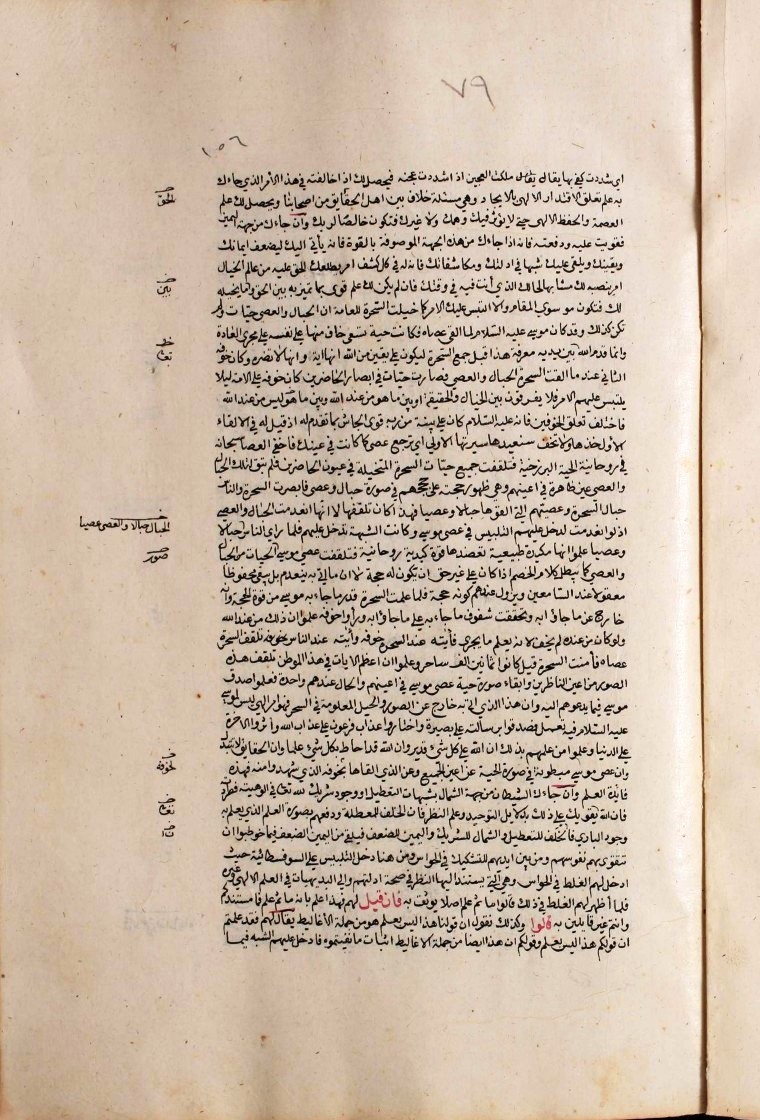 ٧٩
١٥٦
اي شددت كفي بها يقال ملكت العجين اذا شددت عجنه فيحصل لك اذا خالفته في هذا الامر الذي جاءك
به علم تعلق الاقتدار الالهي بالايجاد وهي مسئلة خلاف بين اهل الحقايق من اصحابنا ويحصل لك علم
العصمة والحفظ الالهي حتى لا يؤثر فيك وهمك ولا غيرك فتكون خالصا لربك وان جاءك من جهة اليمين
فقويت عليه ودفعته فانه اذا جاءك من هذه الجهة الموصوفة بالقوة فانه يأتي اليك ليضعف ايمانك
ويقينك ويلقي عليك شبها في ادلتك ومكاشفاتك فانه له في كل كشف امر يطلعك الحق عليه من عالم الخيال
امر ينصبه لك مشابها لحالك الذي أنت فيه في وقتك فان لم يكن لك علم قوي بما تميز به بين الحق وما يخيله
لك فتكون موسوي المقام والا التبس عليك الامر كما خيلت السحرة للعامة ان الحبال والعصي حيات ولم
تكن كذلك وقد كان موسى عليه السلام لما القى عصاه فكانت حية تسعى خاف منها على نفسه على مجرى العادة
وانما قدم الله بين يديه معرفة هذا قبل جمع السحرة ليكون على يقين من الله انها اية وانها لا تضره وكان خوفه
الثاني عند ما القت السحرة الحبال والعصي فصارت حيات في ابصار الحاضرين كان خوفه على الامة ليلا
يلتبس عليهم الامر فلا يفرقون بين الخيال والحقيقة او بين ما هو من عند الله وبين ما هو ليس من عند الله
فاختلف تعلق الخوفين فانه عليه السلام كان على بينة من ربه قوي الجاش بما تقدم له اذ قيل له في الالقاء
الاول خذها ولا تخف سنعيدها سيرتها الاولى اي ترجع عصى كما كانت في عينك فاخفى العصا سبحانه
في روحانية الحية البرزخية فتلقفت جميع حيات السحرة المتخيلة في عيون الحاضرين فلم يبق لتلك الحبال
والعصي عين ظاهرة في اعينهم وهي ظهور حجته على حججهم في صورة حبال وعصي فابصرت السحرة والناس
حبال السحرة وعصيهم التي القوها حبالا وعصيا فهذا كان تلقفها لا انها انعدمت الحبال والعصي
اذ لو انعدمت لدخل عليهم التلبيس في عصى موسى وكانت الشبهة تدخل عليهم فلما راى الناس حبالا
وعصيا علموا انها مكيدة طبيعية تعضدها قوة كيدية روحانية فتلقفت عصى موسى الحيات من الحبال
والعصي كما يبطل كلام الخصم اذا كان على غير حق ان يكون له حجة لا ان ما اتى به ينعدم بل يبقى محفوظا
معقولا عند السامعين ويزول عندهم كونه حجة فلما علمت السحرة قدر ما جاء به موسى من قوة الحجة وانه
خارج عن ما جاؤا به وتحققت شفوف ما جاء به على ما جاؤا به وراوا خوفه علموا ان ذلك من عند الله
ولو كان من عنده لم يخف لانه يعلم ما يجري فأيته عند السحرة خوفه وأيته عند الناس بخوفه تلقف السحرة
عصاه فأمنت السحرة قيل كانوا ثمانين الف ساحر وعلموا ان اعظم الايات في هذا الموطن تلقف هذه
الصور من اعين الناظرين وابقاء صورة حية عصى موسى في اعينهم والحال عندهم واحدة فعلموا صدق
موسى فيما يدعوهم اليه وان هذا الذي اتى به خارج عن الصور والحيل المعلومة في السحر فهو امر الهي ليس لموسى
عليه السلام فيه تعمل فصدقوا برسالته على بصيرة واختاروا عذاب فرعون على عذاب الله وأثروا الاخرة
على الدنيا وعلموا من علمهم بذلك ان الله على كل شيء قدير وان الله قد احاط بكل شيء علما وان الحقايق لا تتبدل
وان عصى موسى مبطونة في صورة الحية عن اعين الجميع وعن الذي القاها بخوفه الذي شهدوا منه فهذه
فايدة العلم وان جاءك الشيطان من جهة الشمال بشبهات التعطيل او وجود شريك لله تعالى في الوهيته فطردته
فان الله يقويك على ذلك بدلايل التوحيد وعلم النظر فان الخلف للمعطلة ودفعهم بصورة العلم الذي يعلم به
وجود الباري فالخلف للتعطيل والشمال للشرك واليمين للضعف فيلقي من اليمين الضعف فيما خوطبوا ان
تتقوى بهم نفوسهم ومن بين ايديهم للتشكيك في الحواس ومن هنا دخل التلبيس على السوفسطائية حيث
ادخل لهم الغلط في الحواس وهي التي يستند اليها النظر في صحة ادلتهم والى البديهيات في العلم الالهي وغيره
فلما أظهر لهم الغلط في ذلك قالوا ما ثم علم اصلا يوثق به فان قيل لهم فهذا علم بانه ما ثم علم فما مستندكم
وانتم غير قايلين به قالوا وكذلك نقول ان قولنا هذا ليس بعلم هو من جملة الاغاليط يقال لهم فقد علمتم
ان قولكم هذا ليس بعلم وقولكم ان هذا ايضا من جملة الاغاليط اثبات ما نفيتموه فادخل عليهم الشبه فيما
الحق
بين
تعا
الحبال حبالا والعصي عصيا
صور
لخوفه
تعا